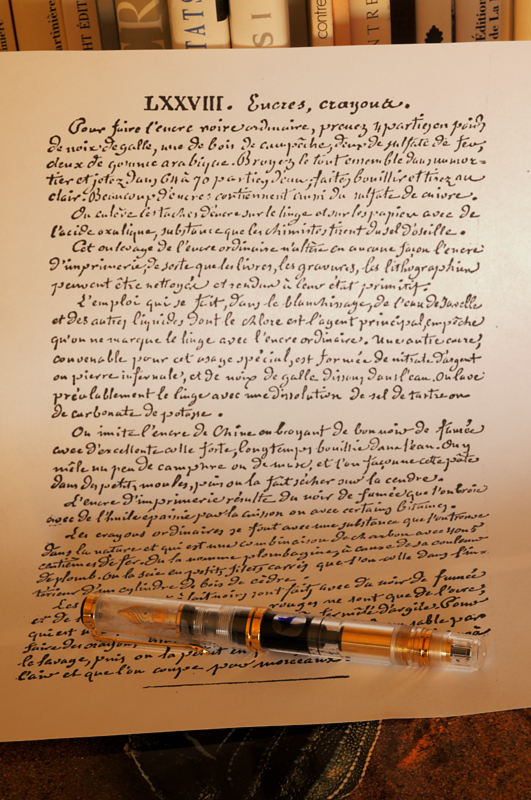 artinière
HT ÉDIT
TATS
SI
contre
NTRE
Édition
de La
LXXVIII. Encres, crayons.
Pour faire l'encre noire ordinaire, prenez 4 parties en poids
de noix de galle, une de bois de campêche, deux de sulfate de fer,
deux de gomme arabique. Broyez le tout ensemble dans un mor-
tier et jetez dans 64 à 70 parties d'eau, faites bouillir et tirez au
clair. Beaucoup d'encres contiennent aussi du sulfate de cuivre.
On enlève les taches d'encre sur le linge et sur les papiers avec de
l'acide oxalique, substance que les chimistes tirent du sel d'oseille.
Cet enlevage de l'encre ordinaire n'altère en aucune façon l'encre
d'imprimerie, de sorte que les livres, les gravures, les lithographies
peuvent être nettoyés et rendus à leur état primitif.
L'emploi qui se fait, dans le blanchissage, de l'eau de Javelle
et des autres liquides dont le chlore est l'agent principal, empêche
qu'on ne marque le linge avec l'encre ordinaire. Une autre encre,
convenable pour cet usage spécial, est formée de nitrate d'argent
ou pierre infernale, et de noix de galle dissous dans l'eau. On lave
préalablement le linge avec une dissolution de sel de tartre ou
de carbonate de potasse.
On imite l'encre de Chine en broyant de bon noir de fumée
avec d'excellente colle forte, longtemps bouillie dans l'eau. On y
mêle un peu de camphre ou de musc, et l'on façonne cette pâte
dans de petits moules, puis on la fait sécher sur la cendre.
L'encre d'imprimerie résulte du noir de fumée que l'on broie
avec de l'huile épaissie par la cuisson ou avec certains bitumes.
Les crayons ordinaires se font avec une substance que l'on trouve
dans la nature et qui est une combinaison de charbon avec 5 ou 6
centièmes de fer. On la nomme plombagine, à cause de sa couleur
de plomb. On la scie en petits filets carrés que l'on colle dans l'in-
térieur d'un cylindre de bois de cèdre.
Les noirs sont faits avec du noir de fumée
et de rouges ne sont que de l'ocre,
qui est mêlé d'argile. Pour
faire des crayons, sable par
le lavage, puis on la pétrit en
l'air et que l'on coupe par morceaux.